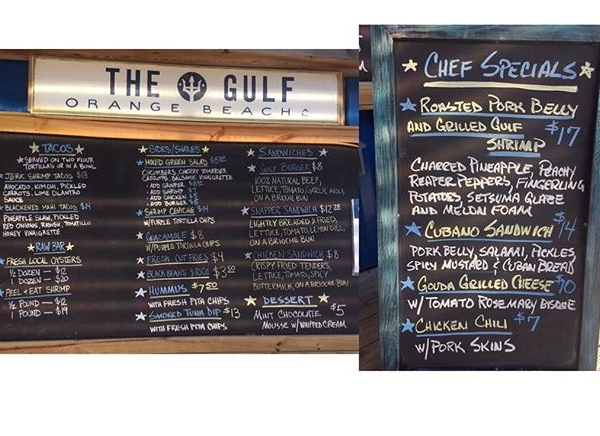 THE GULF
ORANGE BEACH
★ TACOS ★
★ SERVED ON TWO FLOUR
TORTILLAS OR IN A BOWL
★ JERK SHRIMP TACOS $13
AVOCADO, KIMCHI, PICKLED
CARROTS, LIME CILANTRO
SAUCE
★ BLACKENED MAHI TACOS $14
PINEAPPLE SLAW, PICKLED
RED ONIONS, RADISH, TOMATILLO
HONEY VINAIGRETTE
★ RAW BAR ★
★ FRESH LOCAL OYSTERS
½ DOZEN — $12
1 DOZEN — $20
★ PEEL & EAT SHRIMP
½ POUND — $12
1 POUND — $19
★ SIDES/SHARES ★
★ MIXED GREEN SALAD
CUCUMBERS, CHERRY TOMATOES,
CARROTS, BALSAMIC VINAIGRETTE
- ADD GROUPER
- ADD SHRIMP
- ADD CHICKEN
- ADD BURGER
★ SHRIMP CEVICHE $14
W/PURPLE TORTILLA CHIPS
★ GUACAMOLE $8
W/PURPLE TORTILLA CHIPS
★ FRESH CUT FRIES $4
★ BLACK BEANS & RICE $3.50
★ HUMMUS $7.50
WITH FRESH PITA CHIPS
★ SMOKED TUNA DIP $13
WITH FRESH PITA CHIPS
★ SANDWICHES ★
★ GULF BURGER $8
100% NATURAL BEEF,
LETTUCE, TOMATO, GARLIC AIOLI,
ON A BRIOCHE BUN
★ SNAPPER SANDWICH
LIGHTLY BREADED & FRIED,
LETTUCE, TOMATO, LEMON DILL,
ON A BRIOCHE BUN
★ CHICKEN SANDWICH $8
CRISPY FRIED TENDERS,
LETTUCE, TOMATO, SPICY
BUTTERMILK, ON A BRIOCHE BUN
★ DESSERT ★
MINT CHOCOLATE $5
MOUSSE W/WHIPPED CREAM
★ CHEF SPECIALS ★
★ ROASTED PORK BELLY
AND GRILLED GULF $17
SHRIMP
CHARRED PINEAPPLE, PEACHY
REAPER PEPPERS, FINGERLING
POTATOES, SETSUMA GLAZE
AND MELON FOAM
★ CUBANO SANDWICH $14
PORK BELLY, SALAMI, PICKLES
SPICY MUSTARD & CUBAN BREAD
★ GOUDA GRILLED CHEESE $10
W/TOMATO ROSEMARY BISQUE
★ CHICKEN CHILI $7
W/PORK SKINS